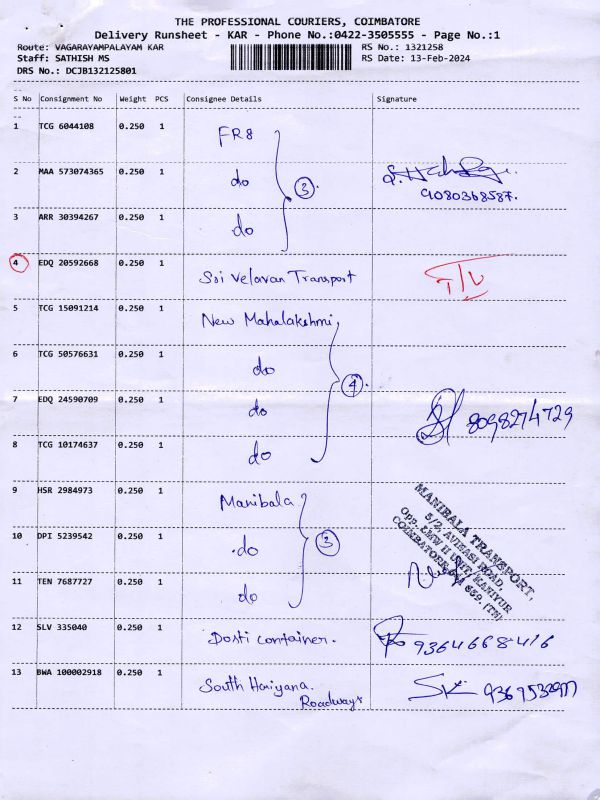 THE PROFESSIONAL COURIERS, COIMBATORE
Delivery Runsheet - KAR - Phone No.:0422-3505555 - Page No.:1
Route: VAGARAYAMPALAYAM KAR
RS No.: 1321258
Staff: SATHISH MS
RS Date: 13-Feb-2024
DRS No.: DCJB132125801
S No Consignment No Weight PCS Consignee Details Signature
1 TCG 6044108 0.250 1 FR8
2 MAA 573074365 0.250 1 do 3.
9080368587.
3 ARR 30394267 0.250 1 do
4 EDQ 20592668 0.250 1 Sri Velavan Transport T/L
5 TCG 15091214 0.250 1 New Mahalakshmi
6 TCG 50576631 0.250 1 do 4.
7 EDQ 24590709 0.250 1 do 8098274729
8 TCG 10174637 0.250 1 do
9 HSR 2984973 0.250 1 Manibala
10 DPI 5239542 0.250 1 do 3
11 TEN 7687727 0.250 1 do
MANIBALA TRANSPORT,
5/2, AVINASI ROAD,
Opp. LMW II UNIT, KANIYUR
COIMBATORE 659. (TN)
12 SLV 335040 0.250 1 Dosti container. 9364668416
13 BWA 100002918 0.250 1 South Hariyana.
Roadways